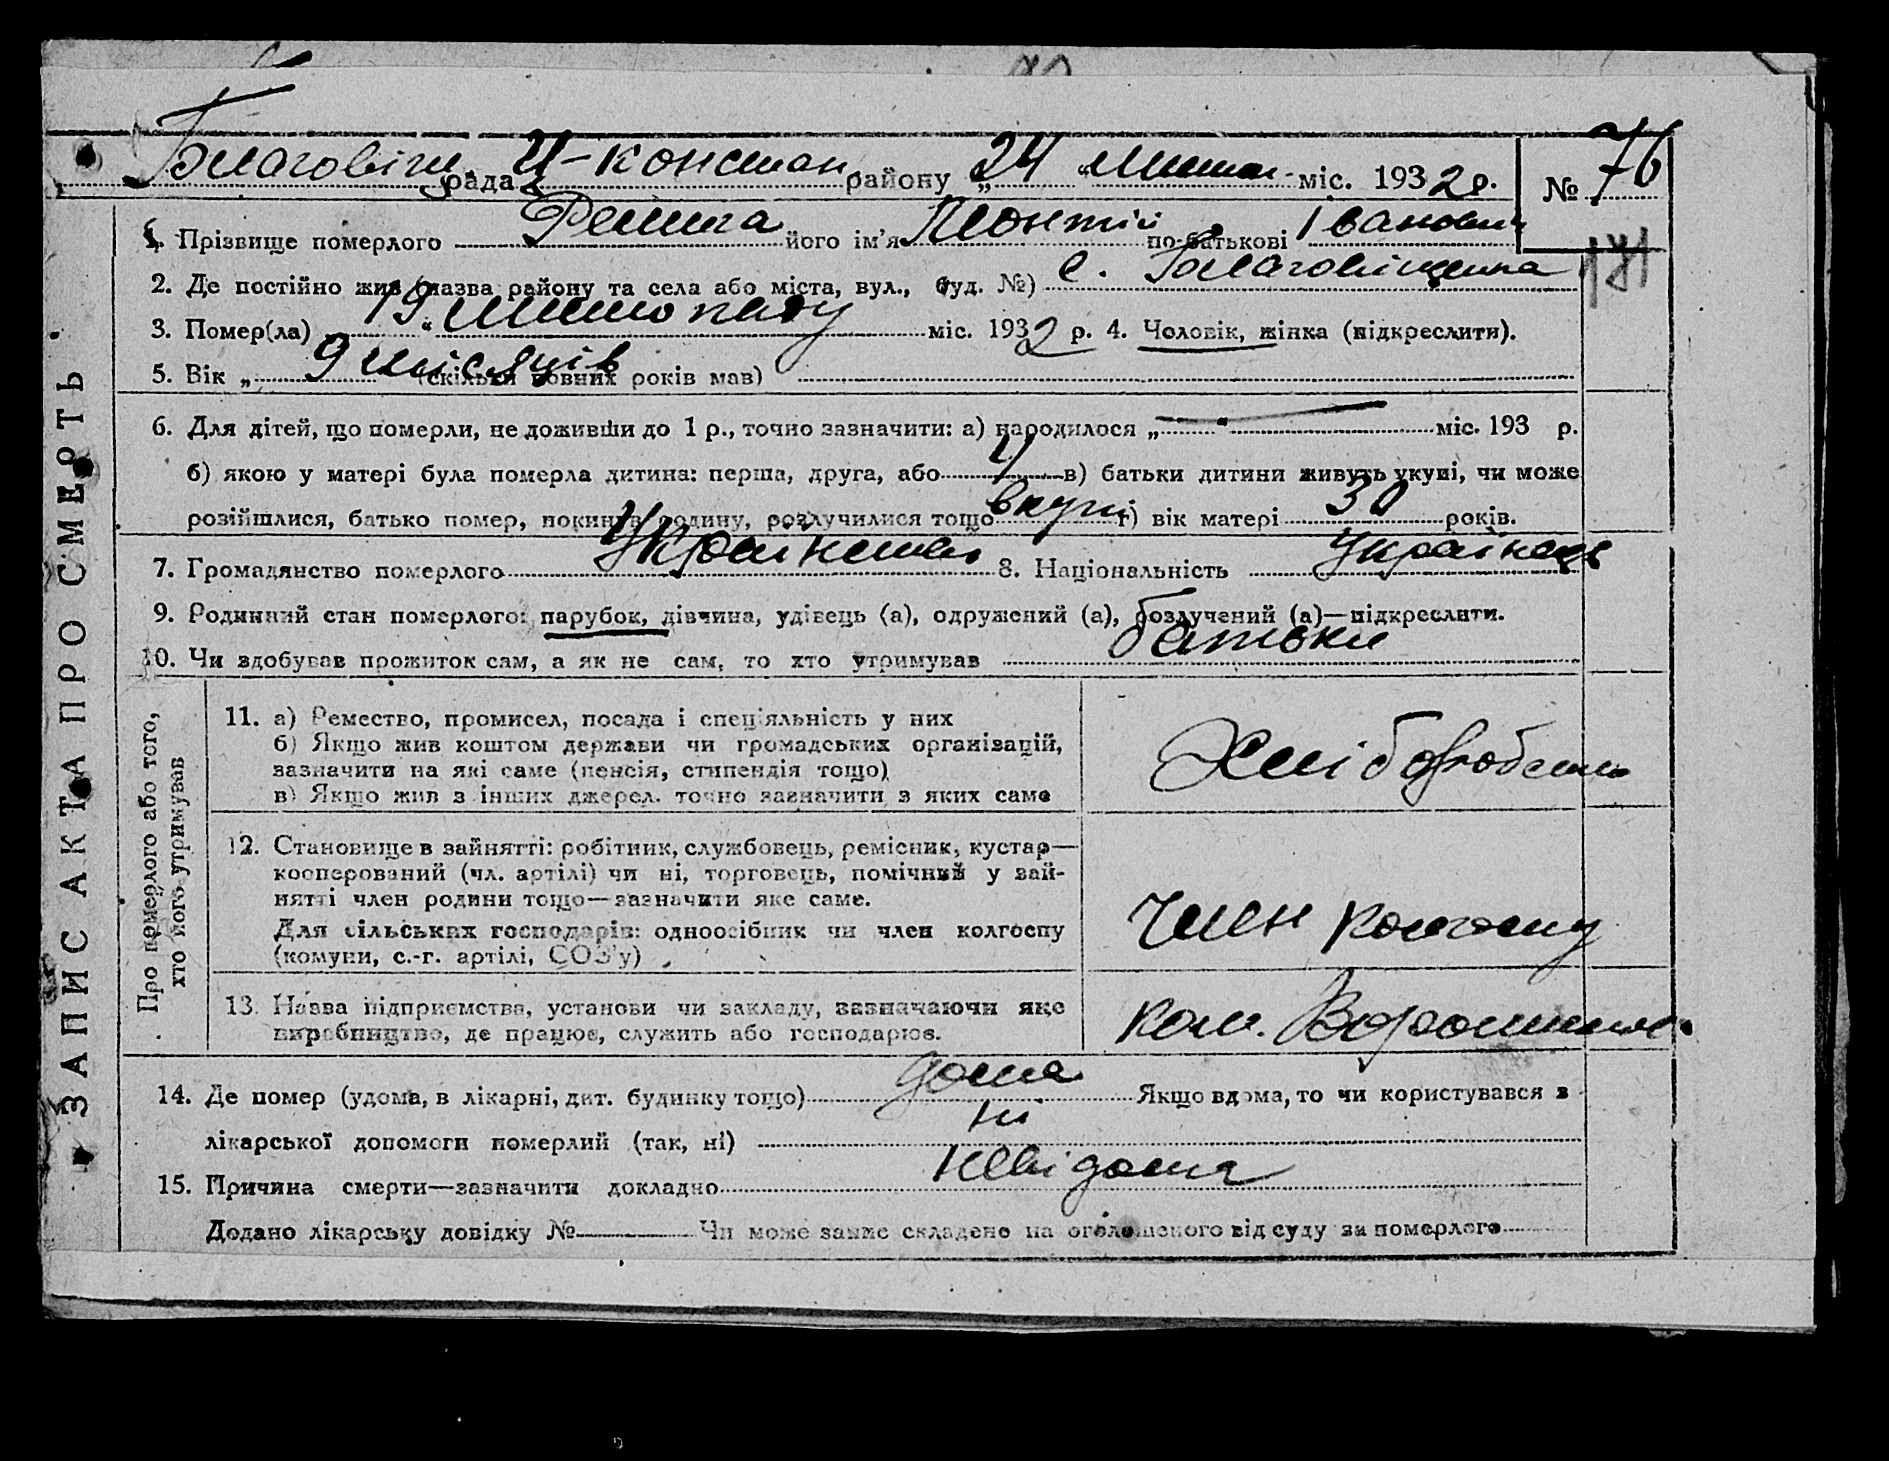 Благовіщ. рада К-констан. району „24 „ листоп. міс. 1932 р. № 76
1. Прізвище померлого його ім'я Леонтій по-батькові Іванович
171
2. Де постійно жив (назва району та села або міста, вул., буд. №) с. Благовіщенка
3. Помер(ла) 19 „ листопаду міс. 1932 р. 4. Чоловік, жінка (підкреслити).
5. Вік „ 9 місяців (скільки повних років мав)
6. Для дітей, що померли, не доживши до 1 р., точно зазначити: а) народилося „ “ міс. 193 р.
б) якою у матері була померла дитина: перша, друга, або 4 в) батьки дитини живуть укупі, чи може
розійшлися, батько помер, покинув родину, розлучилися тощо вкупі г) вік матері 30 років.
7. Громадянство померлого 8. Національність українець
9. Родинний стан померлого: парубок, дівчина, удівець (а), одружений (а), розлучений (а)—підкреслити.
10. Чи здобував прожиток сам, а як не сам, то хто утримував батьки
ЗАПИС АКТА ПРО СМЕРТЬ
Про померлого або того,
хто його утримував
11. а) Ремество, промисел, посада і спеціяльність у них
б) Якщо жив коштом держави чи громадських організацій,
зазначити на які саме (пенсія, стипендія тощо)
в) Якщо жив з інших джерел. точно зазначити з яких саме
Хліборобство
12. Становище в зайнятті: робітник, службовець, ремісник, кустар—
кооперований (чл. артілі) чи ні, торговець, помічний у зай-
нятті член родини тощо—зазначити яке саме.
Для сільських господарів: одноосібник чи член колгоспу
(комуни, с.-г. артілі, СОЗ'у)
Член колгоспу
13. Назва підприємства, установи чи закладу, зазначаючи яке
виробництво, де працює, служить або господарює.
кол. Ворошилова
14. Де помер (удома, в лікарні, дит. будинку тощо) дома Якщо вдома, то чи користувався з
лікарської допомоги померлий (так, ні) ні
15. Причина смерти—зазначити докладно невідома
Додано лікарську довідку № Чи може запис складено на оголошеного від суду за померлого